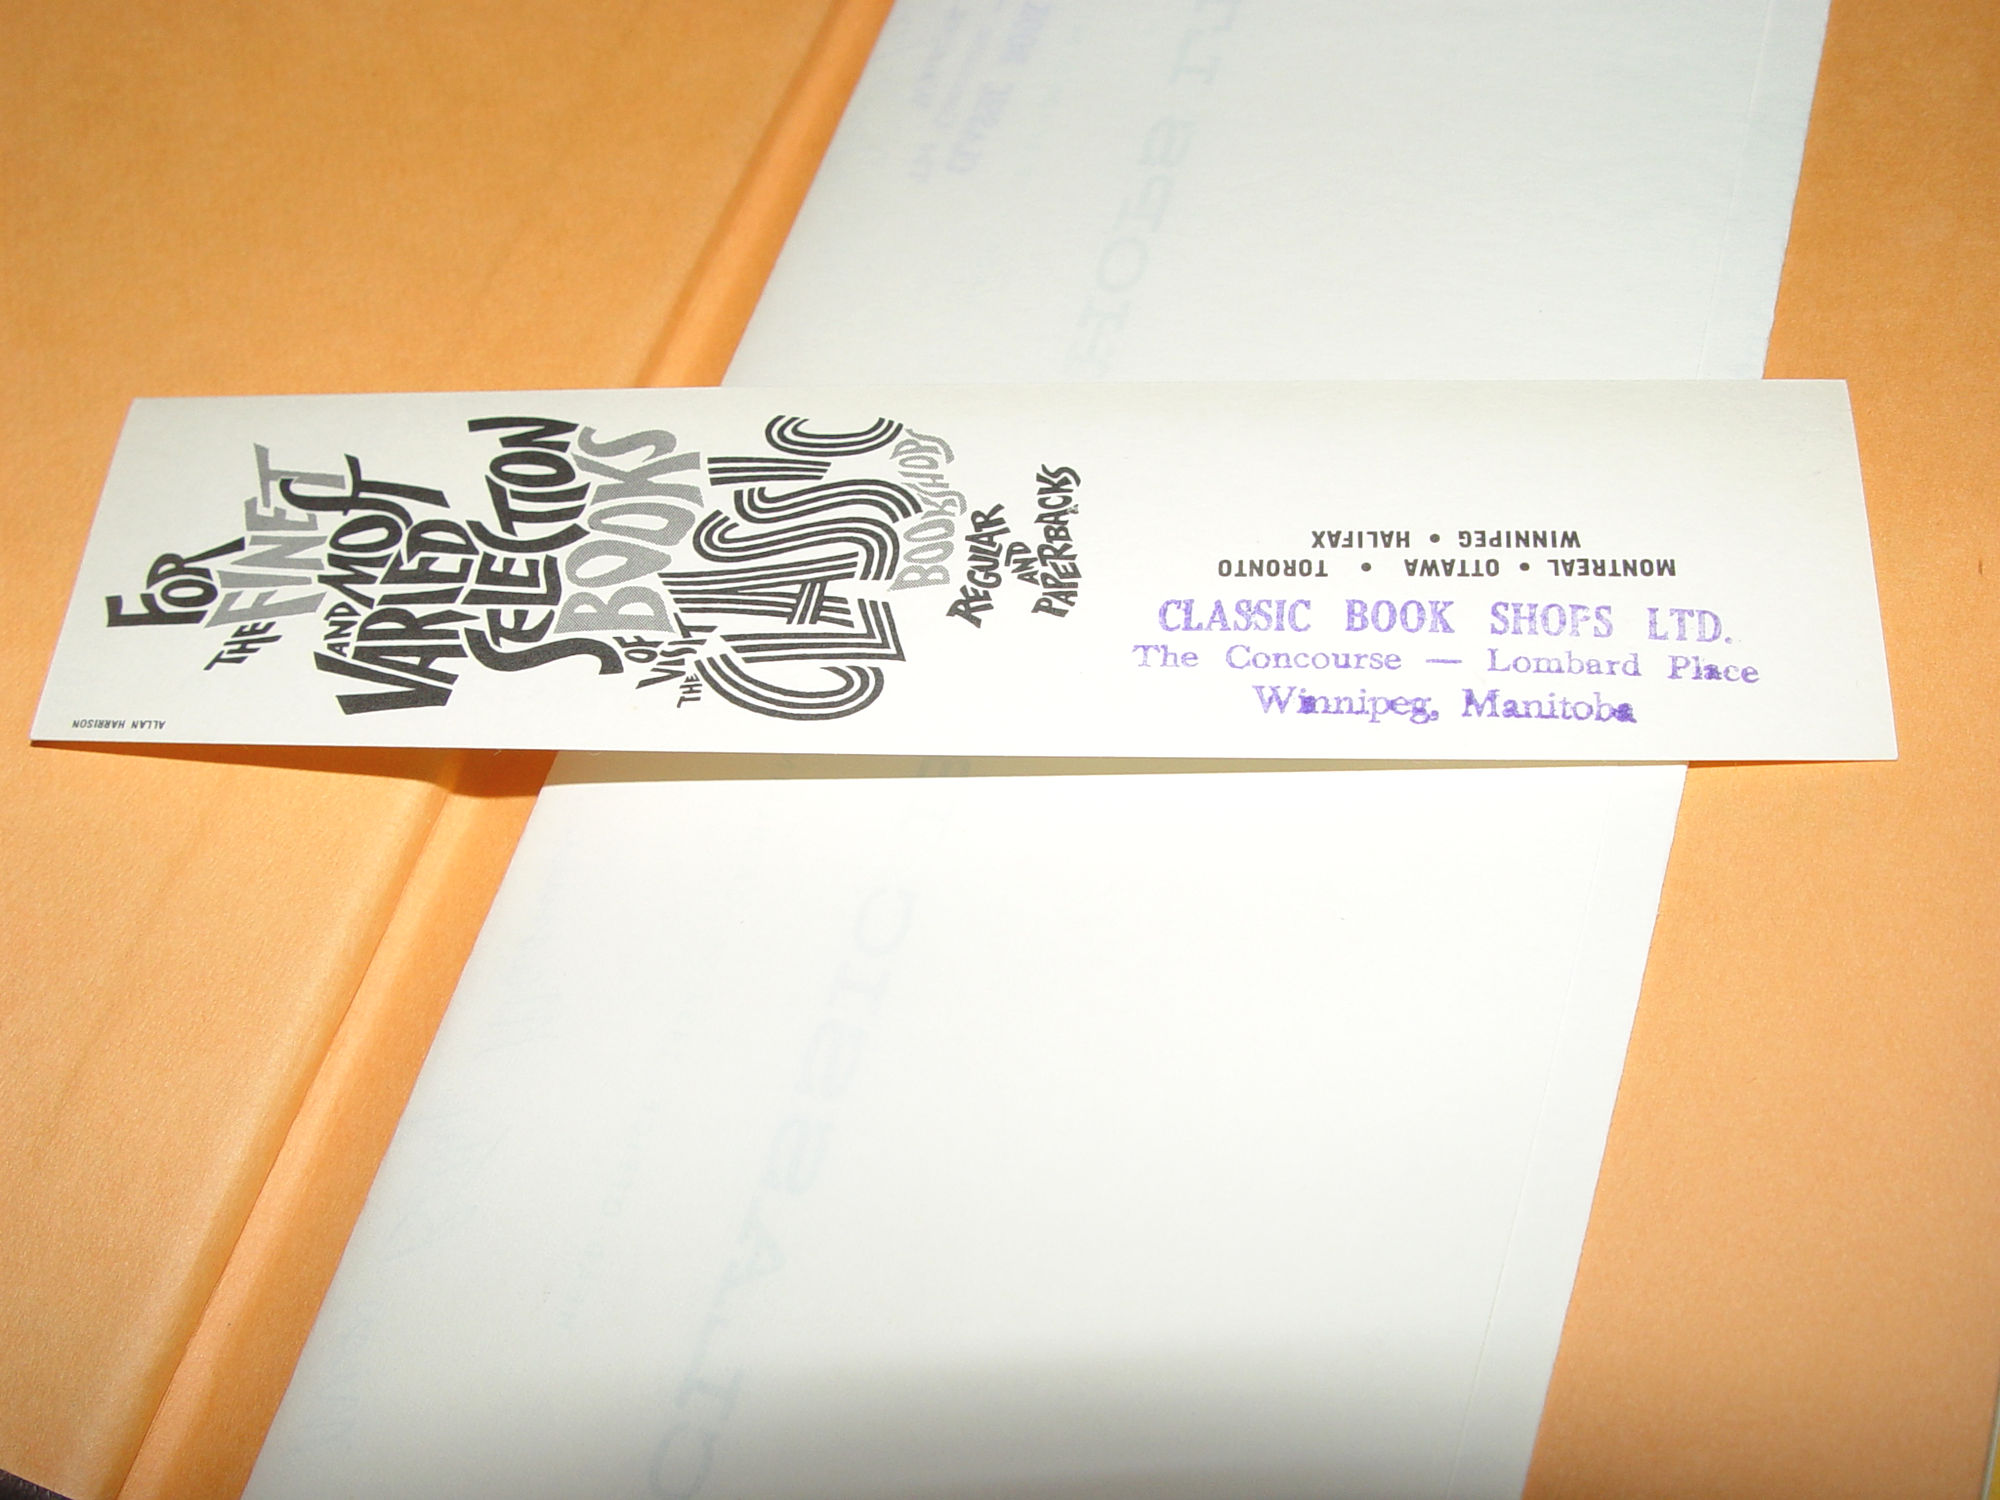 FOR
THE FINEST
AND MOST
VARIED
SELECTION
OF BOOKS
VISIT
THE CLASSIC
BOOKSHOPS
REGULAR
AND
PAPERBACKS
MONTREAL • OTTAWA • TORONTO
WINNIPEG • HALIFAX
CLASSIC BOOK SHOPS LTD.
The Concourse — Lombard Place
Winnipeg, Manitoba
ALLAN HARRISON